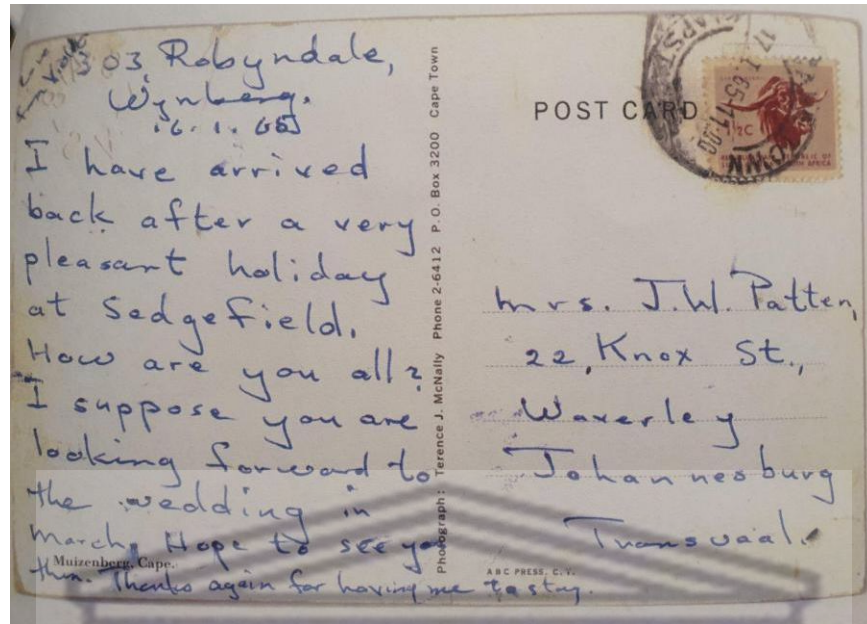 303, Robyndale,
Wynberg.
16. 1. 65
I have arrived
back after a very
pleasant holiday
at Sedgefield.
How are you all?
I suppose you are
looking forward to
the wedding in
March. Hope to see you
then. Thanks again for having me to stay.
Muizenberg, Cape.
Photograph: Terence J. McNally Phone 2-6412 P.O. Box 3200 Cape Town
POST CARD
17. I. 65-11.00
TOWN
½C
REPUBLIC OF
SOUTH AFRICA
Mrs. J.W. Patten,
22, Knox St.,
Waverley
Johannesburg
Transvaal.
ABC PRESS, C.T.